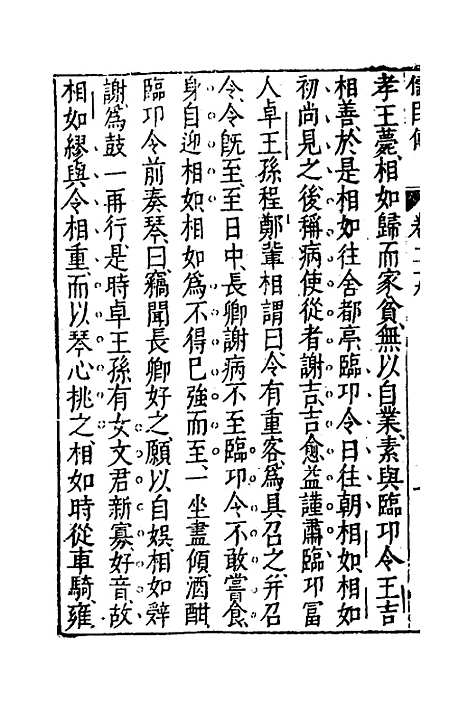 孝王薨、相如歸而家貧、無以自業、素與臨邛令王吉
相善、於是相如往舍都亭、臨邛令日往朝相如、相如
初尚見之、後稱病使從者謝吉、吉愈益謹肅、臨邛冨
人卓王孫程鄭輩相謂曰、令有重客、爲具召之、并召
令、令旣至、至日中、長卿謝病不至、臨邛令不敢嘗食、
身自迎相如、相如爲不得已強而至、一坐盡傾、酒酣
臨邛令前奏琴曰、竊聞長卿好之、願以自娛、相如辤
謝、爲鼓一再行、是時卓王孫有女文君新寡好音、故
相如繆與令相重、而以琴心挑之、相如時從車騎、雍